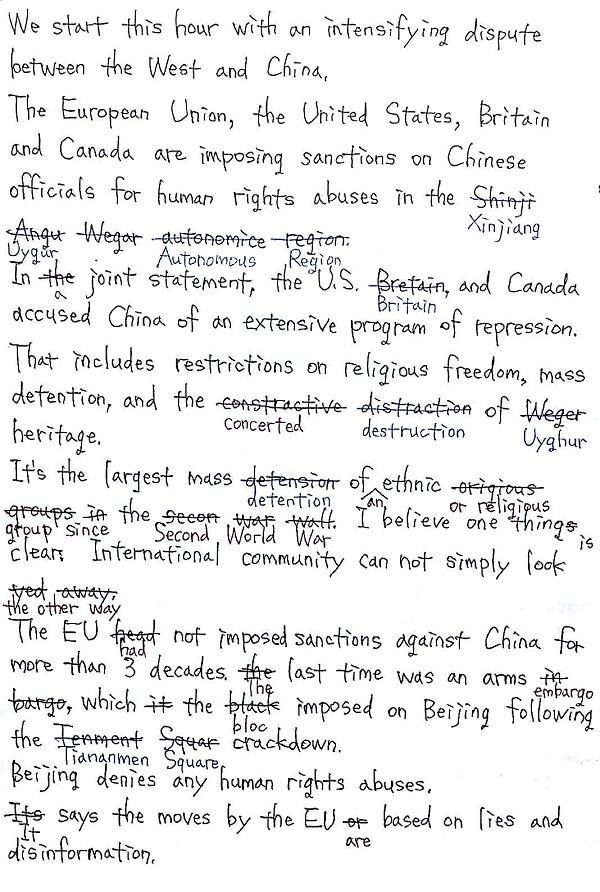 We start this hour with an intensifying dispute
between the West and China.
The European Union, the United States, Britain
and Canada are imposing sanctions on Chinese
officials for human rights abuses in the Shinji
Xinjiang
Angu Wegar autonomice region.
Uygur Autonomous Region
In the joint statement, the U.S. Bretain, and Canada
a Britain
accused China of an extensive program of repression.
That includes restrictions on religious freedom, mass
detention, and the constractive distraction of Weger
concerted destruction Uyghur
heritage.
It's the largest mass detension of ethnic origious
detention an or religious
groups in the secon war wall. I believe one things
group since Second World War is
clear: International community can not simply look
yed away.
the other way
The EU head not imposed sanctions against China for
had
more than 3 decades. the last time was an arms in
The embargo
bargo, which it the black imposed on Beijing following
bloc
the Tenment Squar crackdown.
Tiananmen Square
Beijing denies any human rights abuses.
Its says the moves by the EU or based on lies and
It are
disinformation.